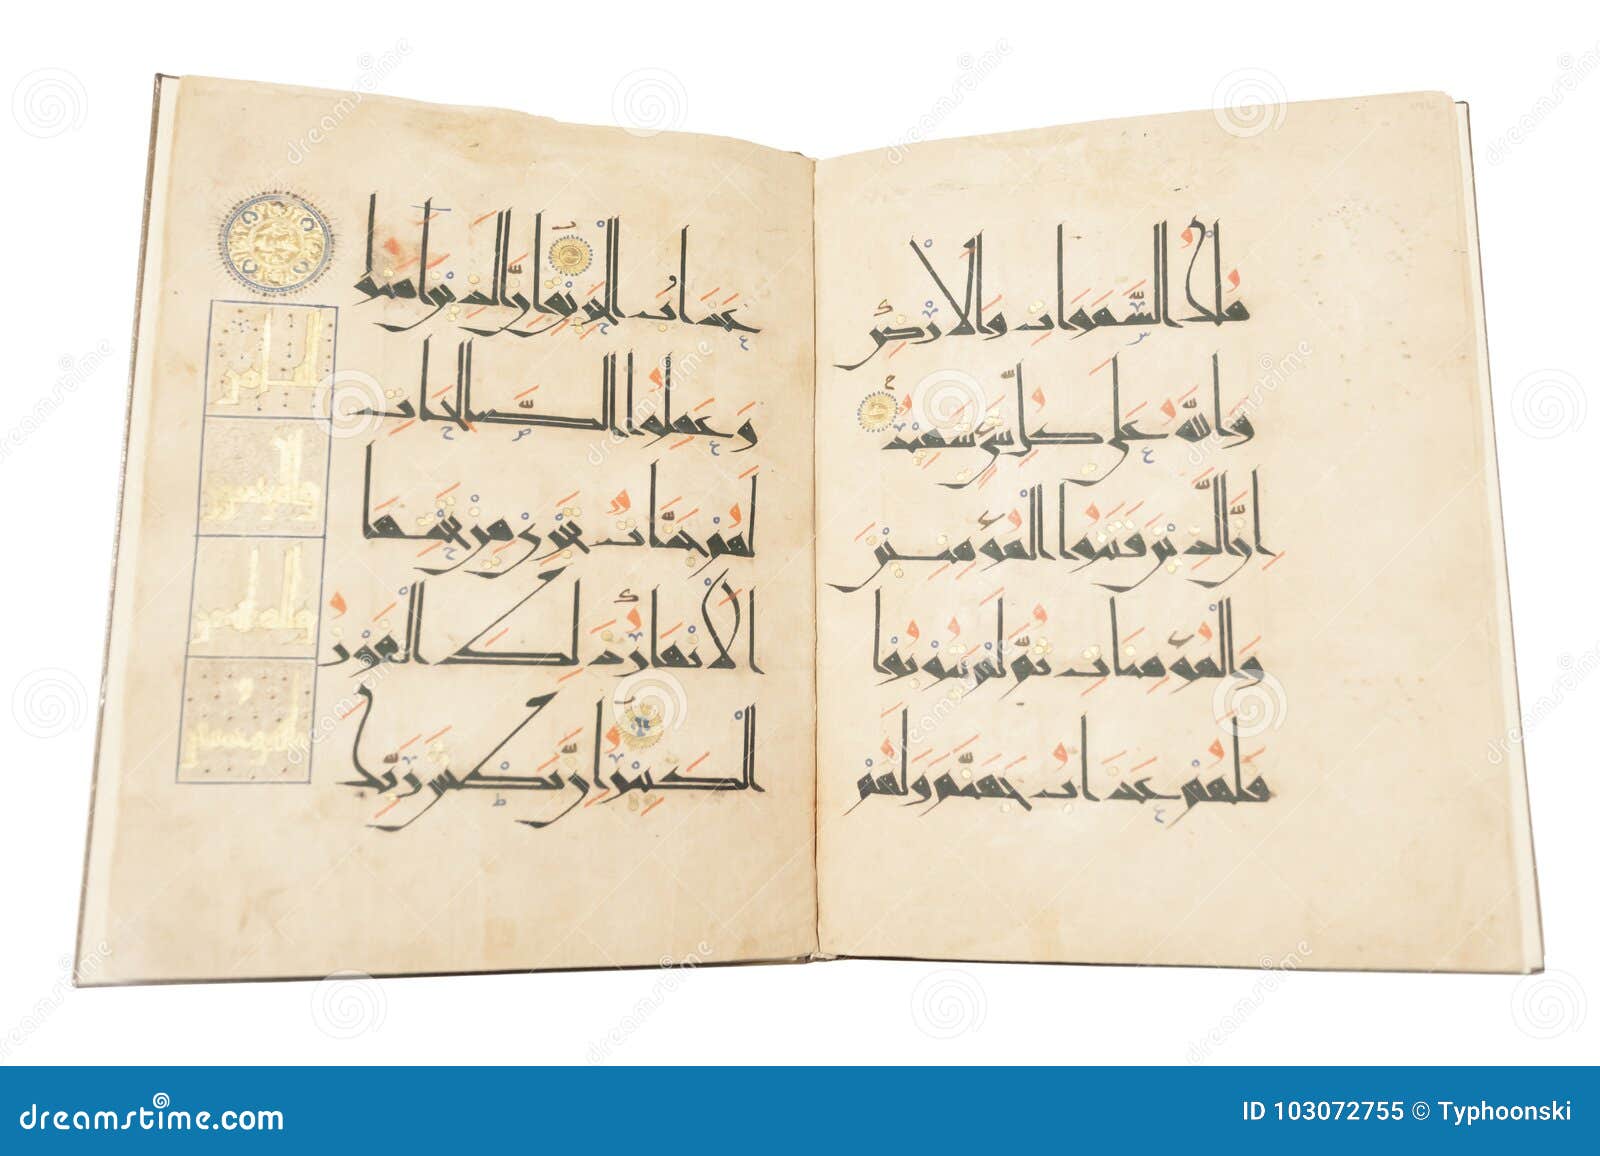 ملك السموات والارض
والله على كل شئ شهيد
ان الذين فتنوا المؤمنين
والمؤمنات ثم لم يتوبوا
فلهم عذاب جهنم ولهم
عذاب الحريق ان الذين امنوا
وعملوا الصالحات
لهم جنات تجري من تحتها
الانهار ذلك الفوز
الكبير ان بطش ربك
dreamstime.com
ID 103072755 © Typhoonski